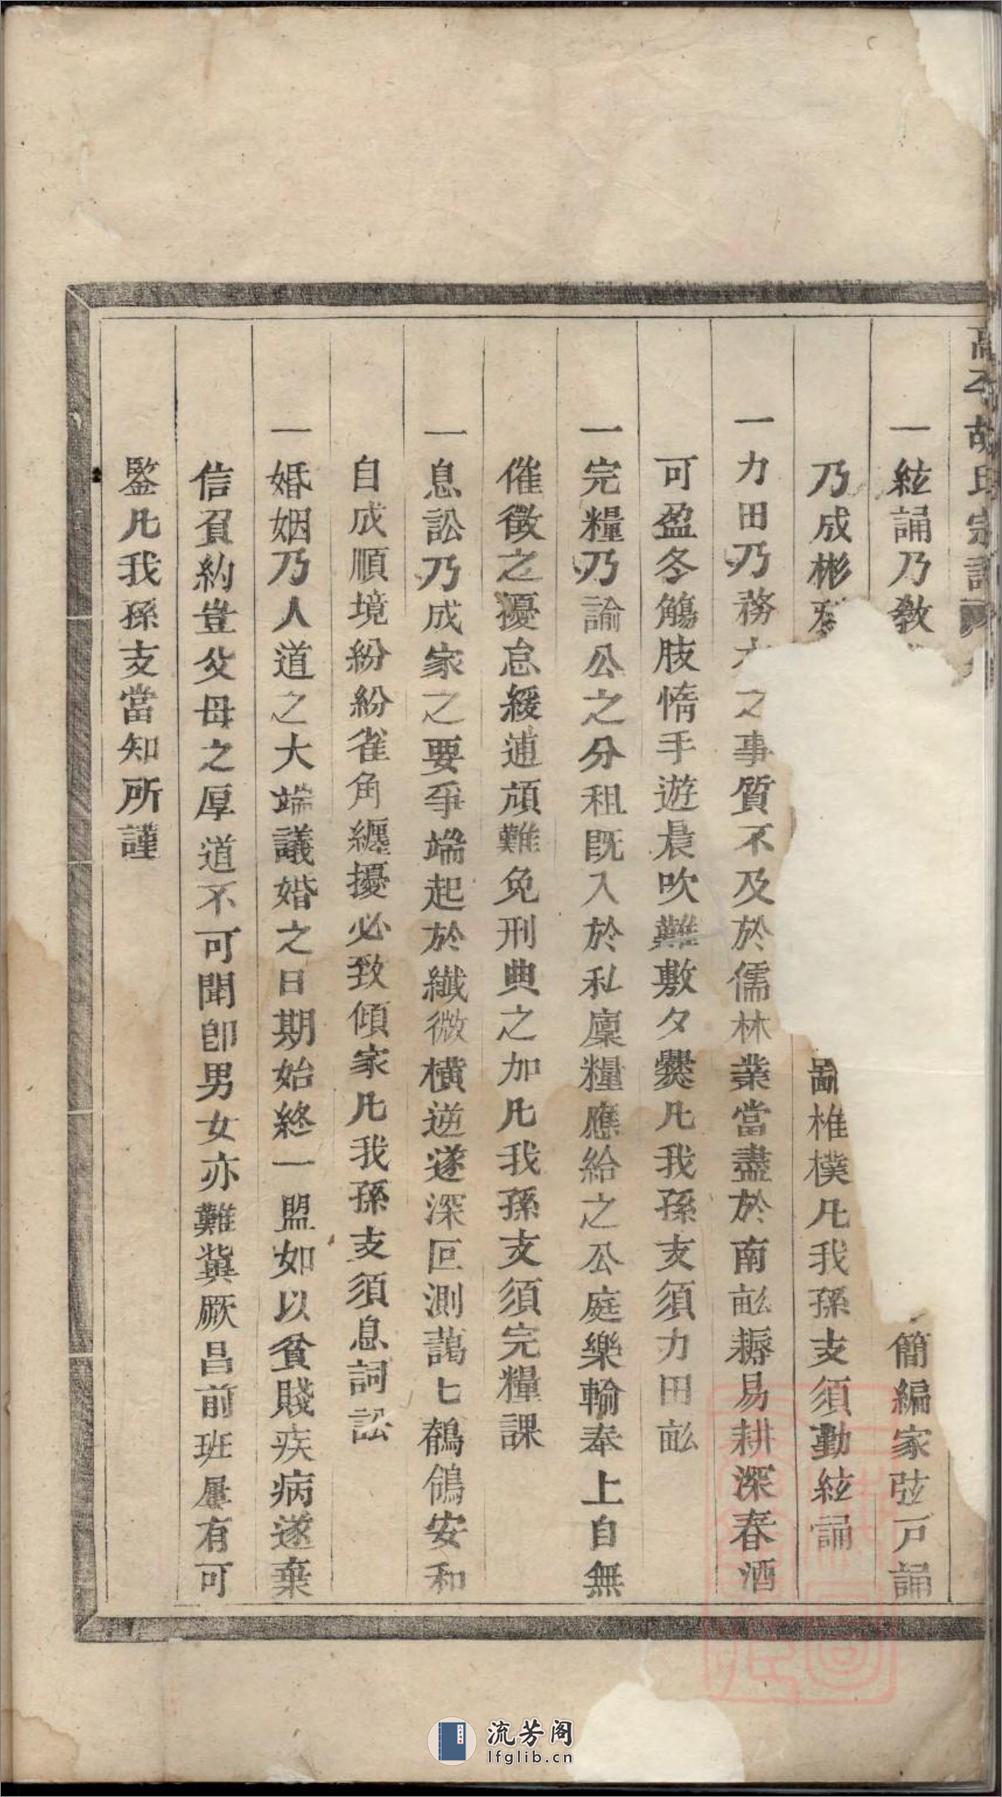 高 胡氏宗譜
一絃誦乃敎 簡編家弦戸誦
乃成彬 鄙椎樸凡我孫支須勤絃誦
一力田乃務 之事質不及於儒林業當盡於南畝耨易耕深春酒
可盈冬觴肢惰手遊晨吹難敷夕爨凡我孫支須力田畝
一完糧乃論公之分租既入於私廩糧應給之公庭樂輸奉上自無
催徵之擾怠緩逋頑難免刑典之加凡我孫支須完糧課
一息訟乃成家之要爭端起於纖微橫逆遂深叵測藹乜鶺鴒安和
自成順境紛紛雀角纒擾必致傾家凡我孫支須息詞訟
一婚姻乃人道之大端議婚之日期始終一盟如以貧賤疾病遂棄
信負約豈父母之厚道不可聞卽男女亦難冀厥昌前班屢有可
鑒凡我孫支當知所謹
流芳阁
lfglib.cn